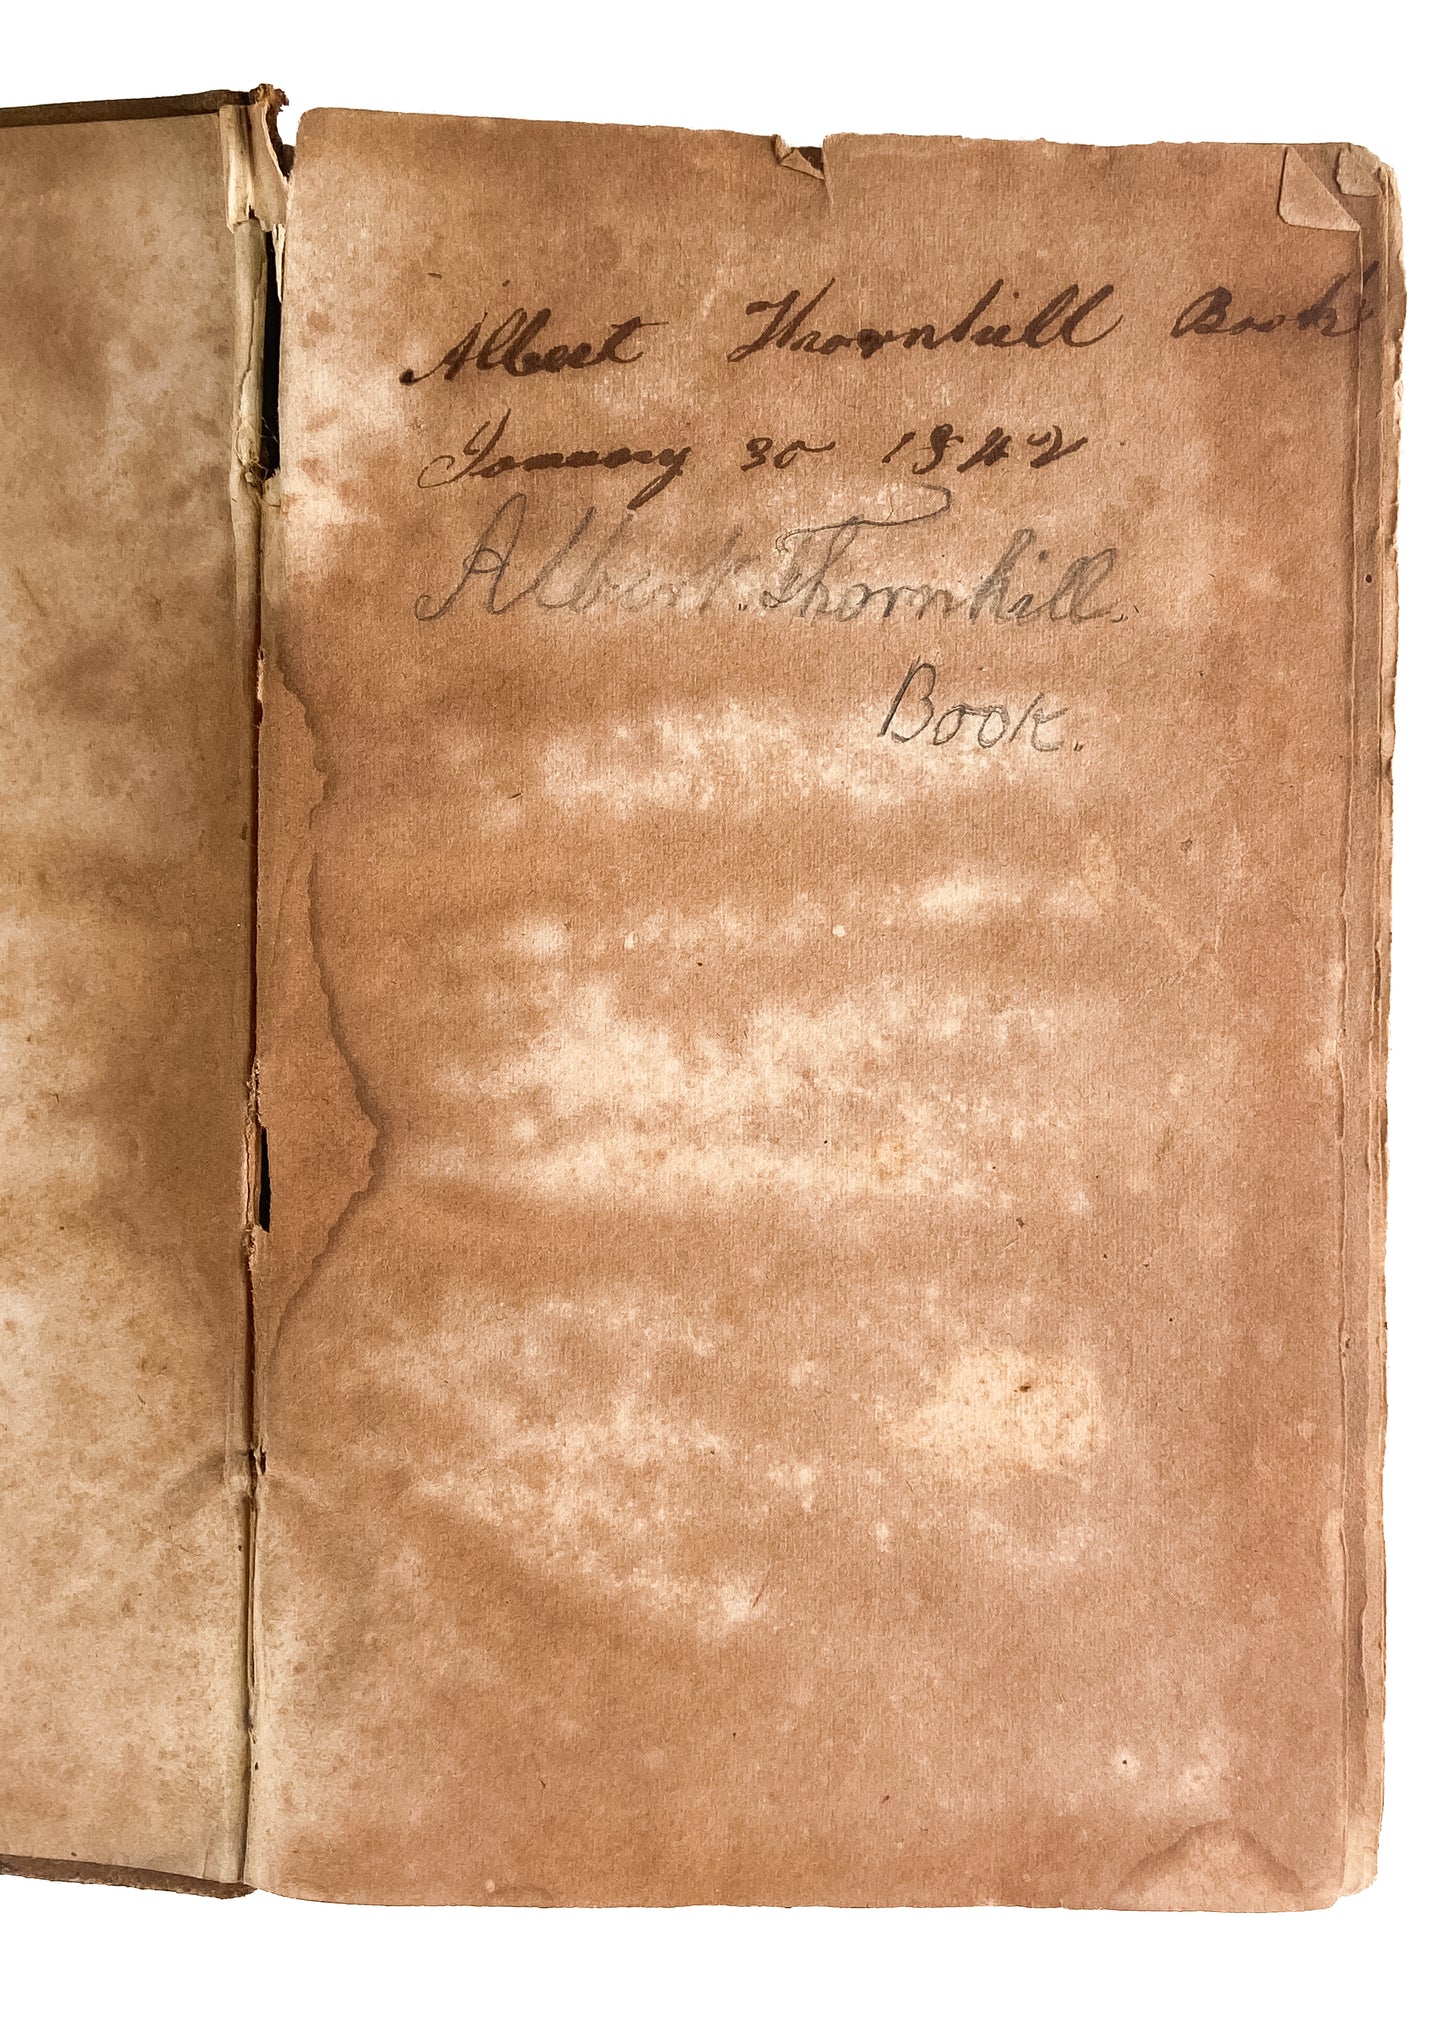 Albert Thornhill Book
January 30 1842
Albert. Thornhill.
Book.